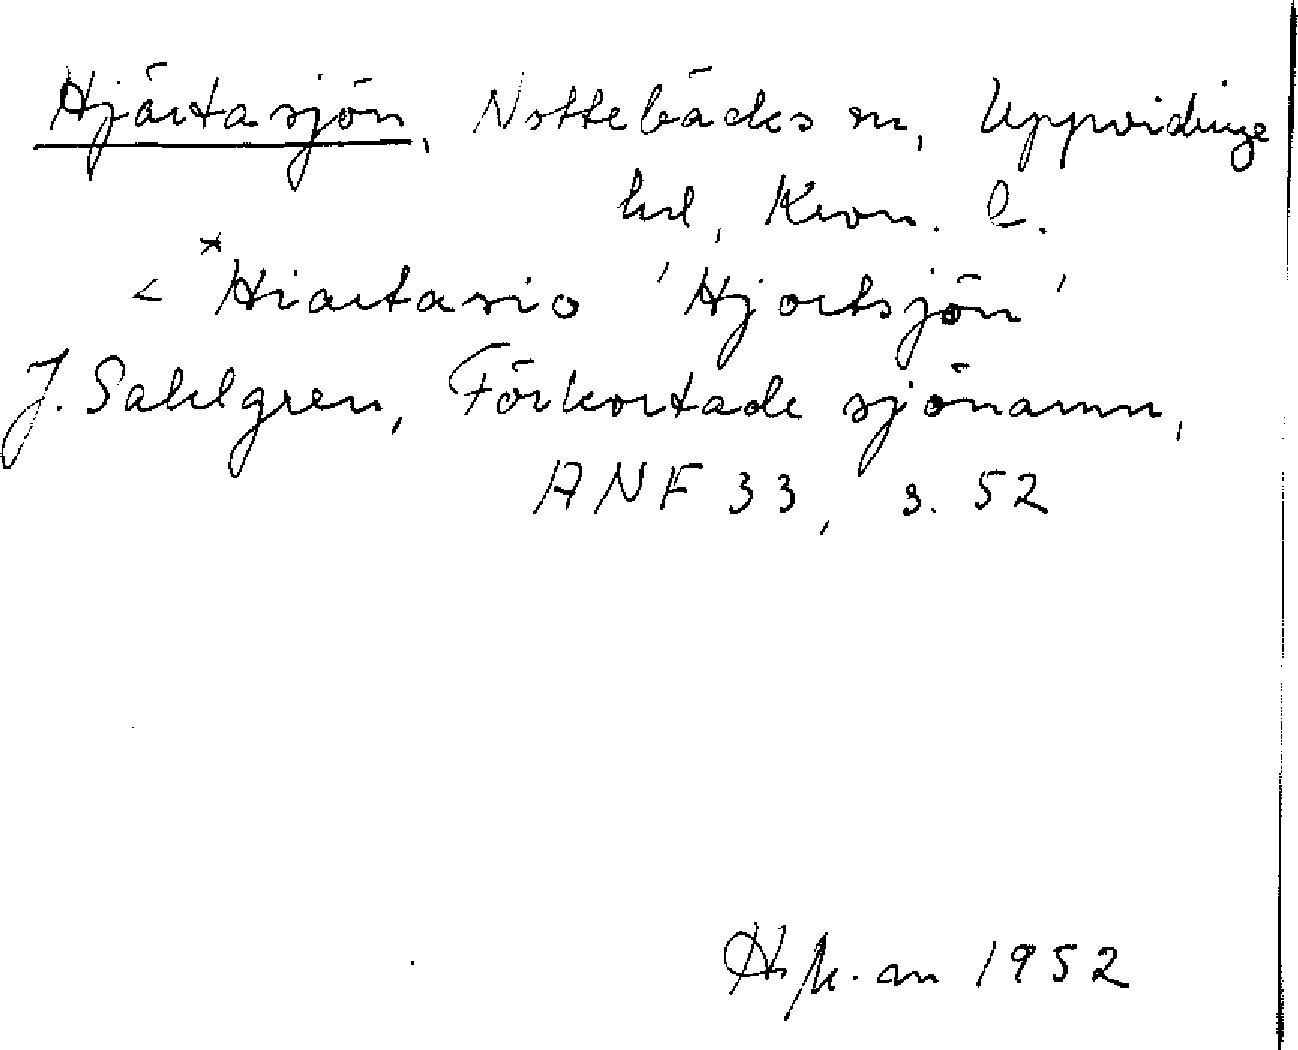 Hjärtasjön, Nottebäcks sn, Uppvidinge
hd, Kron. l.
< *Hiartasio 'Hjortsjön'
J. Sahlgren, Förkortade sjönamn,
ANF 33, s. 52
1952